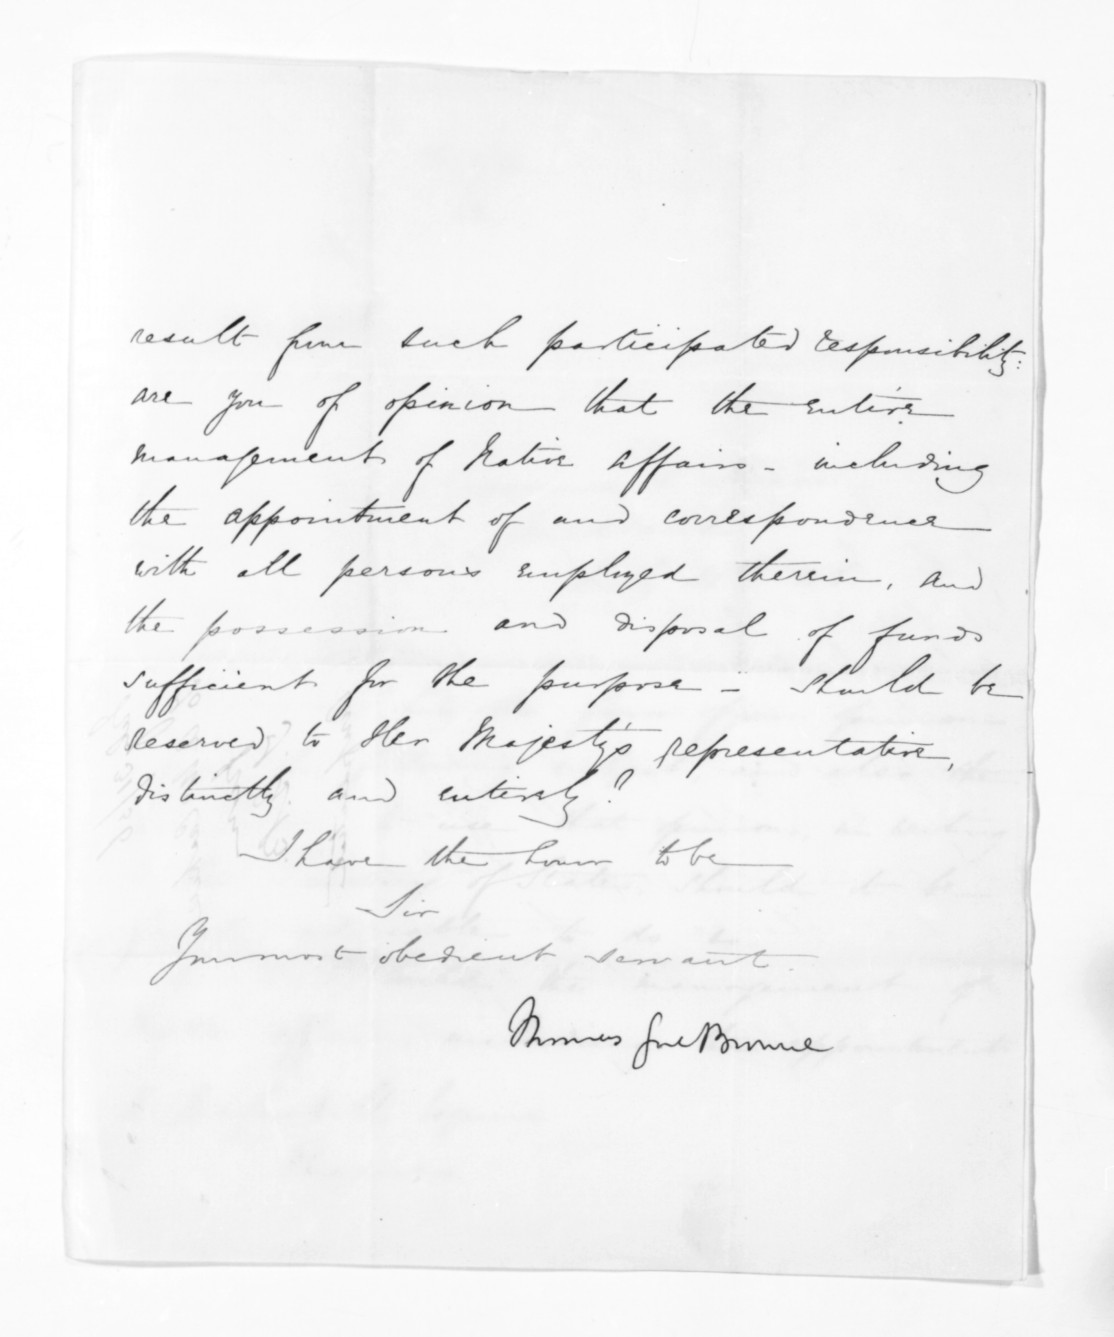 result from such participated responsibility:
are you of opinion that the entire
management of Native affairs - including
the appointment of and correspondence
with all persons employed therein, and
the possession and disposal of funds
sufficient for the purpose - should be
reserved to Her Majesty's representative,
distinctly and entirely?
I have the honor to be
Sir
Your most obedient servant.
Thomas Gore Browne